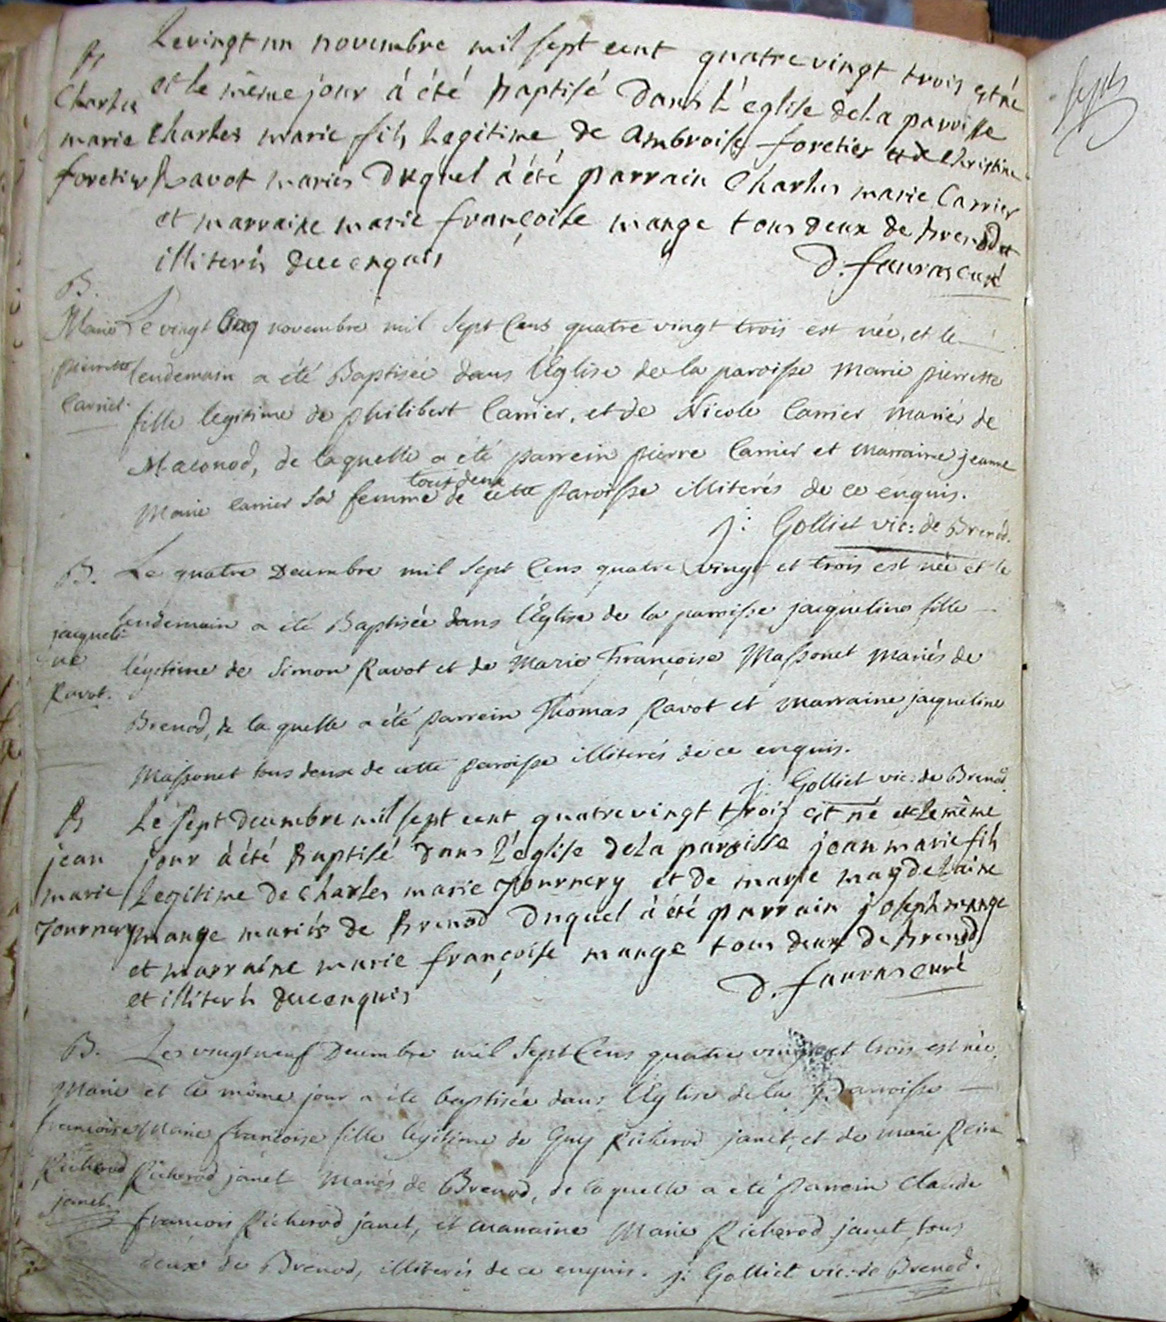 B
Charles
marie
foretier
Le vingt un novembre mil sept cent quatre vingt trois est né
et le même jour à été Baptisé Dans L'eglise de La paroisse
Charles marie fils Legitime de Ambroise foretier et de Christine
Ravot mariés Duquel à été parrain Charles marie Carrier
et marraine marie françoise mange tous deux de Brenod et
illiterés de ce enquis D. favras curé
B.
Marie
pierrette
Carrier.
Le vingt cinq novembre mil sept Cens quatre vingt trois est née, et le
lendemain a été Baptisée dans l'Eglise de la paroisse Marie pierrette
fille legitime de philibert Carrier, et de Nicole Carrier Mariés de
Maconod, de laquelle a été parrein pierre Carrier et Marraine jeanne
Marie carrier sa femme tous deux de cette paroisse illiterés de ce enquis.
j: Golliet vic: de Brenod.
B.
jacqueli-
ne
Ravot.
Le quatre Decembre mil sept Cens quatre vingt et trois est née et le
lendemain a été Baptisée dans l'Eglise de la paroisse jacqueline fille
légitime de Simon Ravot et de Marie Françoise Massonet Mariés de
Brenod, de la quelle a été parrein Thomas Ravot et Marraine jacqueline
Massonet tous deux de cette paroisse illiterés de ce enquis.
j: Golliet vic: de Brenod.
B
jean
marie
Journery
Le sept decembre mil sept cent quatre vingt trois est né et le même
jour à été Baptisé dans L'eglise de La paroisse jean marie fils
Legitime de Charles marie Journery et de marie magdelaine
mange mariés de Brenod duquel à été parrain joseph mange
et marraine marie françoise mange tous deux de Brenod
et illiterés de ce enquis D. favras curé
B.
Marie
françoise
Richerod
janet.
Les vingt neuf Decembre mil Sept Cens quatre vingt et trois est née
et le même jour a été baptisée dans l'Eglise de la Parroisse
Marie françoise fille legitime de Guy Richerod janet, et de Marie Reine
Richerod janet Mariés de Brenod, de laquelle a été Parrein Claude
francois Richerod janet, et Marraine Marie Richerod janet, tous
deux de Brenod, illiterés de ce enquis. j: Golliet vic: de Brenod.